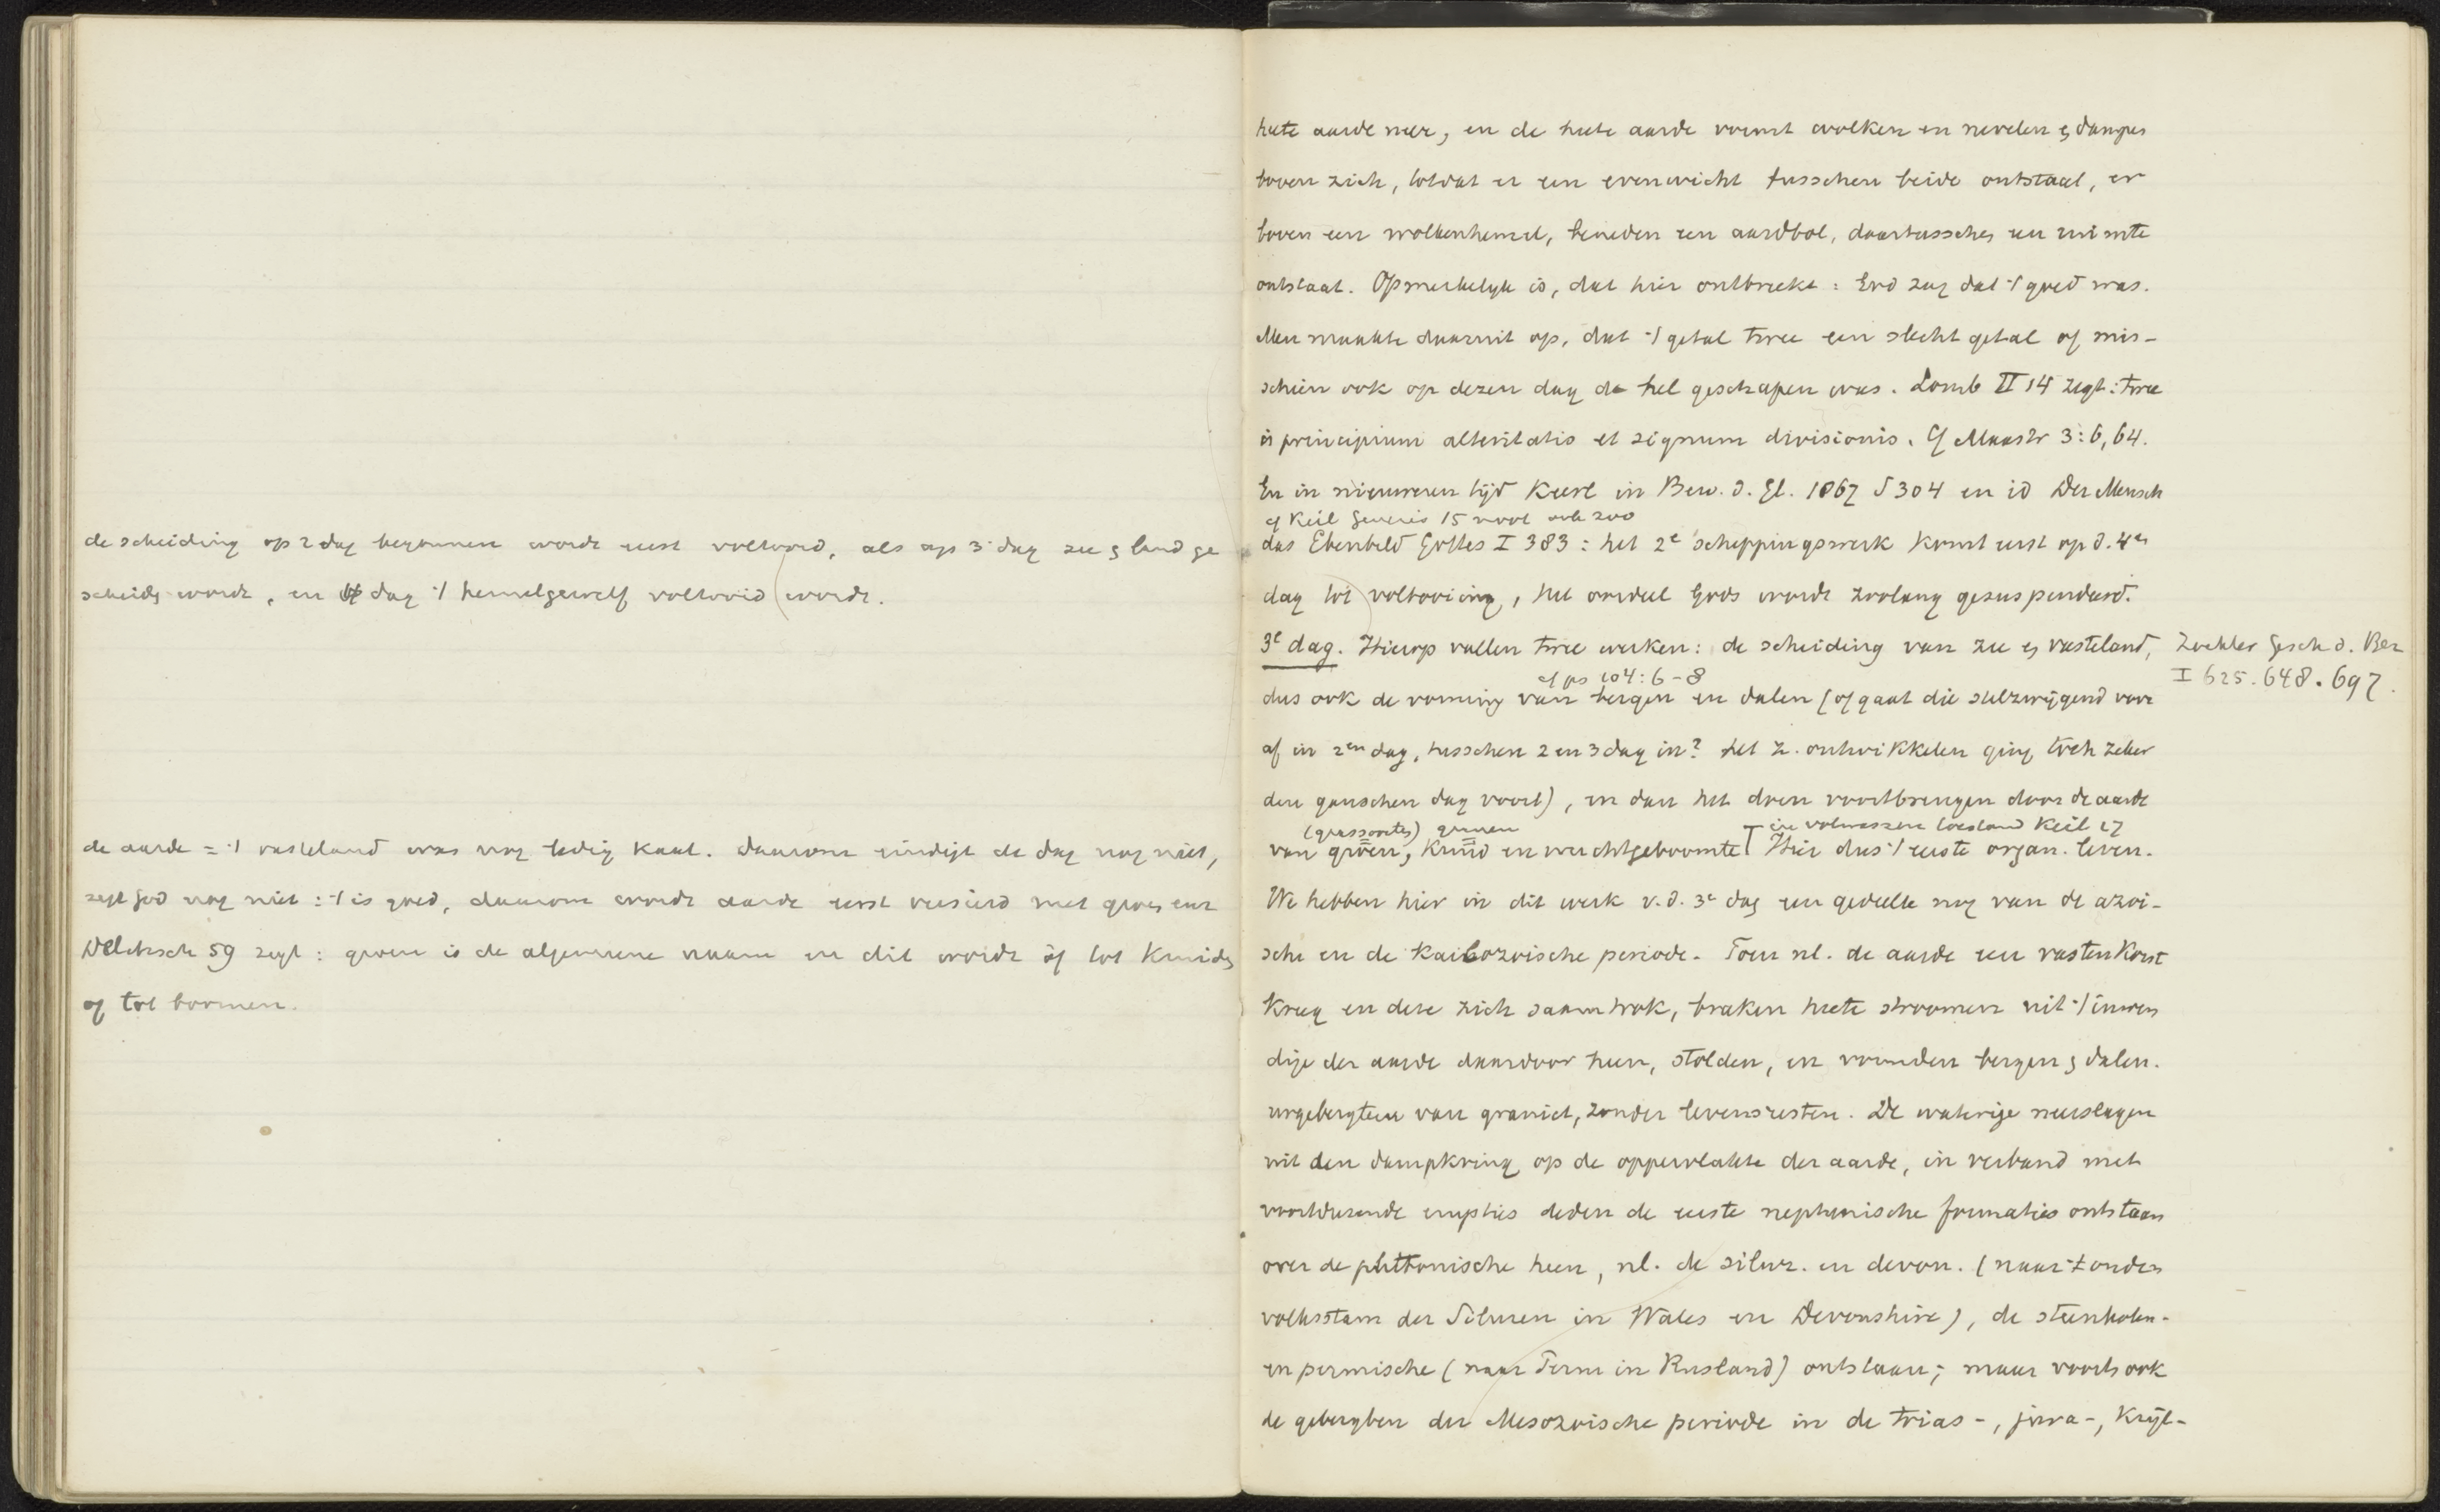 de scheiding op 2 dag begonnen wordt eerst voltooid, als op 3 dag zee & land ge
scheiden wordt, en 4 dag 't hemelgewelf voltooid wordt.
de aarde = 't vasteland was nog ledig kaal. daarom eindigt de dag nog niet,
zegt God nog niet: 't is goed, daarom wordt aarde eerst versierd met groen enz
Delitzsch 59 zegt: groen is de algemeene naam en dit wordt òf tot kruiden
of tot boomen.
heete aarde neer, en de heete aarde vormt wolken en nevelen & dampen
boven zich, totdat er een evenwicht tusschen beide ontstaat, er
boven een wolkenhemel, beneden een aardbol, daartusschen een ruimte
ontstaat. Opmerkelijk is, dat hier ontbreekt: God zag dat 't goed was.
Men maakte daaruit op, dat 't getal twee een slecht getal of mis-
schien ook op dezen dag de hel geschapen was. Lomb II 14 zegt: twee
is principium alteritatis et signum divisionis. Cf Maastr 3:6,64.
En in nieuweren tijd Keerl in Bew. d. Gl. 1867 S 304 en id Der Mensch
cf Keil Genesis 15 noot ook zoo
das Ebenbild Gottes I 383: het 2e scheppingswerk komt eerst op d. 4en
dag tot voltooiing, het oordeel Gods wordt zoolang gesuspendeerd.
3e dag. Hierop vallen twee werken: de scheiding van zee & vasteland,
Zöckler Gesch d. Bez
I 625.648.697.
cf ps 104:6-8
dus ook de vorming van bergen en dalen (of gaat die stilzwijgend voor
af in 2en dag, tusschen 2 en 3 dag in? het z. ontwikkelen ging toch zeker
den ganschen dag voort), en dan het doen voortbrengen door de aarde
(grassoorten) granen
in volwassen toestand Keil 17
van groen, kruid en vruchtgeboomte Hier dus 't eerste organ. leven.
We hebben hier in dit werk v.d. 3e dag een gedeelte nog van de azoi-
sche en de kainozoische periode. Toen nl. de aarde een vasten korst
kreeg en deze zich saamtrok, braken heete stroomen uit 't inwen
dige der aarde daardoor heen, stolden, en vormden bergen & dalen.
urgebergten van graniet, zonder levensresten. De waterige neerslagen
uit den dampkring op de oppervlakte der aarde, in verband met
voortdurende erupties deden de eerste neptunische formaties ontstaan
over de plutonische heen, nl. de silur. en devon. (naar 't ouden
volksstam der Siluren in Wales en Devonshire), de steenkolen-
en permische (naar Perm in Rusland) ontstaan; maar voorts ook
de gebergten der Mesozoische periode in de trias-, jura-, krijt-